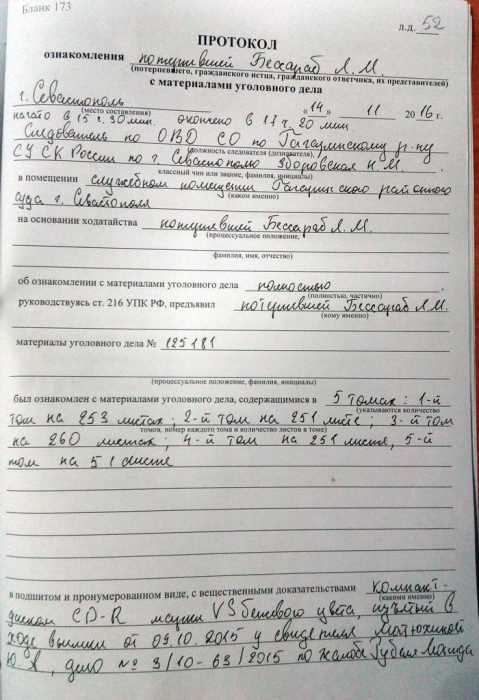 Бланк 173
л.д. 52
ПРОТОКОЛ
ознакомления потерпевшей Бессараб Л.М.
(потерпевшего, гражданского истца, гражданского ответчика, их представителей)
с материалами уголовного дела
г. Севастополь « 14 » 11 20 16 г.
(место составления)
начато в 15 ч. 30 мин. окончено в 17 ч. 20 мин
Следователь по ОВД СО по Гагаринскому р-ну
(должность следователя (дознавателя),
СУ СК России по г. Севастополю Здоровская Н.М.
классный чин или звание, фамилия, инициалы)
в помещении служебном помещении Гагаринского районного
(каком именно)
суда г. Севастополя
на основании ходатайства потерпевшей Бессараб Л.М.
(процессуальное положение,
фамилия, имя, отчество)
об ознакомлении с материалами уголовного дела полностью .
(полностью, частично)
руководствуясь ст. 216 УПК РФ, предъявил потерпевшей Бессараб Л.М.
(кому именно)
материалы уголовного дела № 125181
(процессуальное положение, фамилия, инициалы)
был ознакомлен с материалами уголовного дела, содержащимися в 5 томах: 1-й
(указываются количество
том на 253 листах; 2-й том на 251 листе; 3-й том
томов, номер каждого тома и количество листов в томе)
на 260 листах; 4-й том на 251 листе, 5-й
том на 51 листе
в подшитом и пронумерованном виде, с вещественными доказательствами компакт-
(какими именно)
диском CD-R марки VS бежевого цвета, изъятый в
ходе выемки от 09.10.2015 у свидетеля Матюхиной
Ю.А., дело № 3/10-63/2015 по жалобе